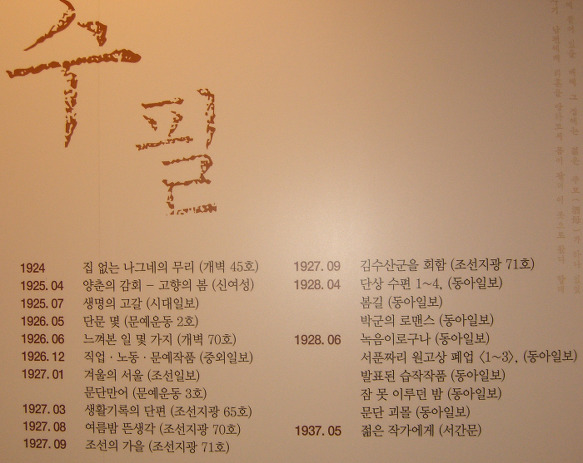 수필
1924 집 없는 나그네의 무리 (개벽 45호)
1925. 04 양춘의 감회 – 고향의 봄 (신여성)
1925. 07 생명의 고갈 (시대일보)
1926. 05 단문 몇 (문예운동 2호)
1926. 06 느껴본 일 몇 가지 (개벽 70호)
1926. 12 직업 · 노동 · 문예작품 (중외일보)
1927. 01 겨울의 서울 (조선일보)
문단만어 (문예운동 3호)
1927. 03 생활기록의 단편 (조선지광 65호)
1927. 08 여름밤 뜬생각 (조선지광 70호)
1927. 09 조선의 가을 (조선지광 71호)
1927. 09 김수산군을 회함 (조선지광 71호)
1928. 04 단상 수편 1~4, (동아일보)
봄길 (동아일보)
박군의 로맨스 (동아일보)
1928. 06 녹음이로구나 (동아일보)
서푼짜리 원고상 폐업 〈1~3〉, (동아일보)
발표된 습작작품 (동아일보)
잠 못 이루던 밤 (동아일보)
문단 괴몰 (동아일보)
1937. 05 젊은 작가에게 (서간문)